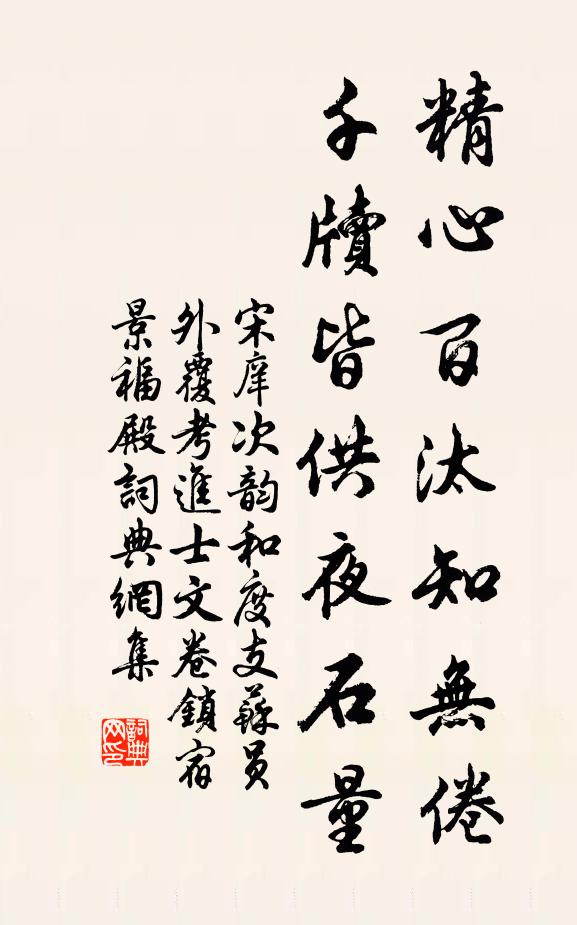 精心百汰知無倦
千牘皆供夜石量
宋庠次韵和度支蘇员
外覆考進士文卷鎖宿
景福殿詞典網集
詞典网印